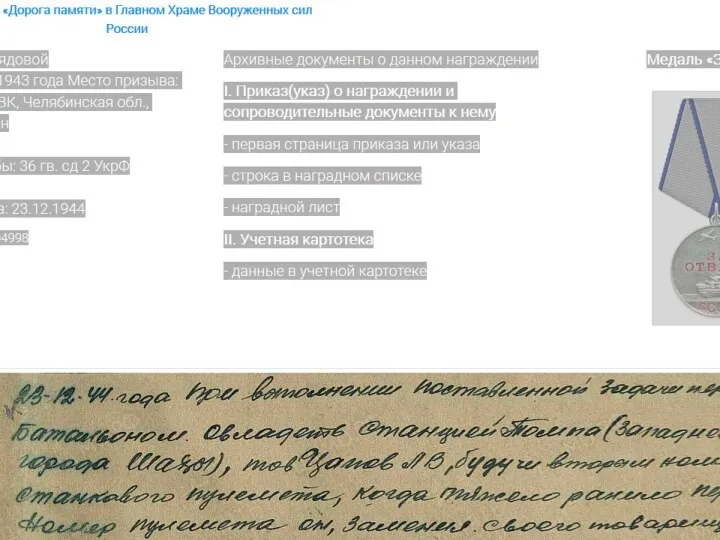 «Дорога памяти» в Главном Храме Вооруженных сил
России
рядовой
1943 года Место призыва:
ВК, Челябинская обл.,
н
ы: 36 гв. сд 2 УкрФ
а: 23.12.1944
4998
Архивные документы о данном награждении
I. Приказ(указ) о награждении и
сопроводительные документы к нему
- первая страница приказа или указа
- строка в наградном списке
- наградной лист
II. Учетная картотека
- данные в учетной картотеке
Медаль «З
ЗА
ОТВ
23-12-44 года при выполнении поставленной задачи пер
Батальоном. овладеть станцией Томпа (западне
города Шацы), тов Цапов Л В, будучи вторым ном
станкового пулемета, когда тяжело ранило пе
номер пулемета он, заменя. своего товарищ